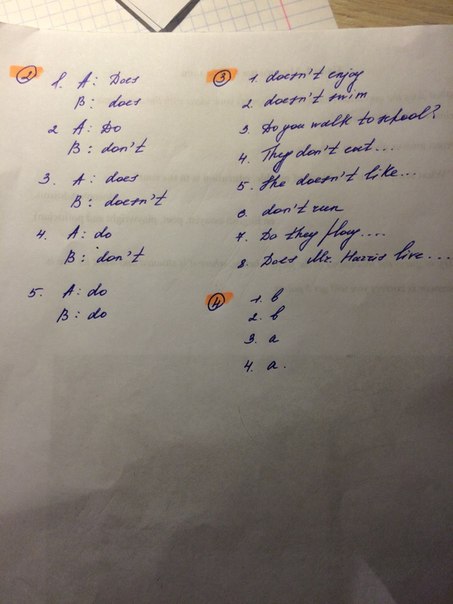 2
1. A: Does
B: does
2 A: Do
B: don't
3. A: does
B: doesn't
4. A: do
B: don't
5. A: do
B: do
3
1. doesn't enjoy
2 doesn't swim
3. Do you walk to school?
4. They don't eat....
5. She doesn't like...
6. don't run
7. Do they play....
8. Does Mr. Harris live...
4
1. b
2. b
3. a
4. a.